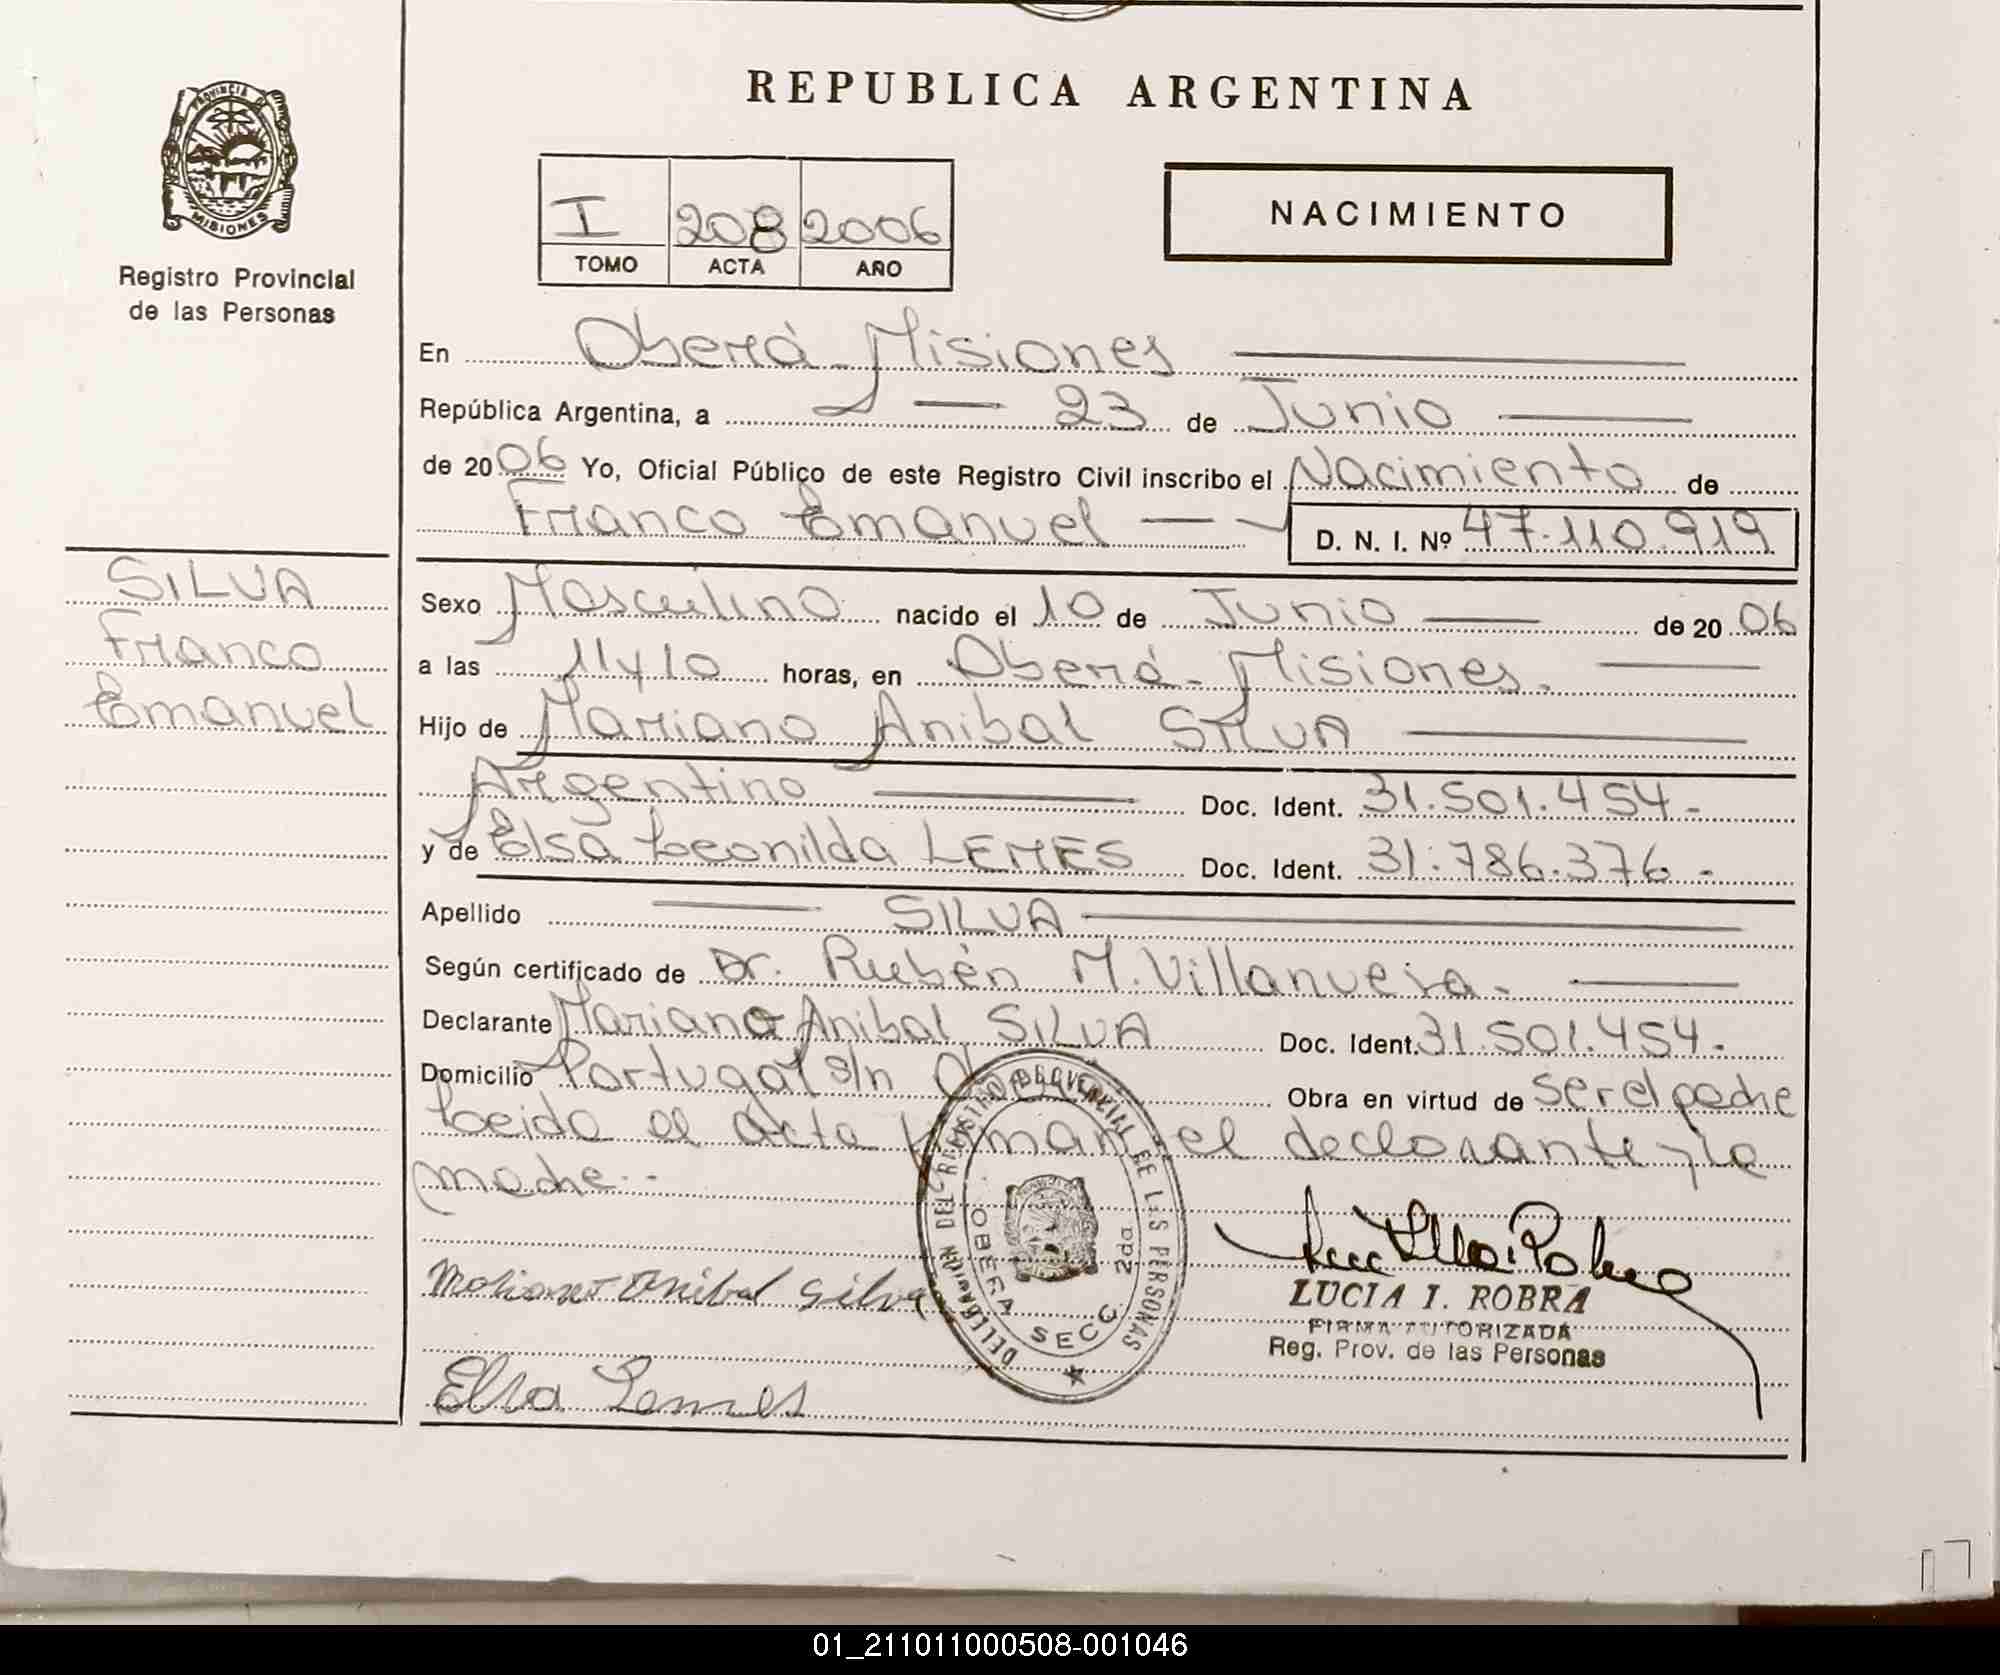 REPUBLICA ARGENTINA
PROVINCIA DE MISIONES
Registro Provincial
de las Personas
I 208 2006
TOMO ACTA AÑO
NACIMIENTO
En Oberá Misiones
República Argentina, a 23 de Junio
de 2006 Yo, Oficial Público de este Registro Civil inscribo el Nacimiento de
Franco Emanuel D. N. I. Nº 47.110.919
SILVA
Franco
Emanuel
Sexo Masculino nacido el 10 de Junio de 2006
a las 11y10 horas, en Oberá - Misiones.
Hijo de Mariano Anibal SILVA
Argentino Doc. Ident. 31.501.454.-
y de Elsa Leonilda LEMES Doc. Ident. 31.786.376.-
Apellido SILVA
Según certificado de Dr. Rubén M. Villanueva.
Declarante Mariano Anibal SILVA Doc. Ident. 31.501.454.
Domicilio Portugal s/n Obra en virtud de ser el padre
Leida el acta firman el declarante y la
madre.-
Mariano Anibal Silva
Elsa Lemes
DELEGACIÓN DEL REGISTRO PROVINCIAL DE LAS PERSONAS
OBERA SECC. 2da
LUCIA I. ROBRA
FIRMA AUTORIZADA
Reg. Prov. de las Personas
01_211011000508-001046